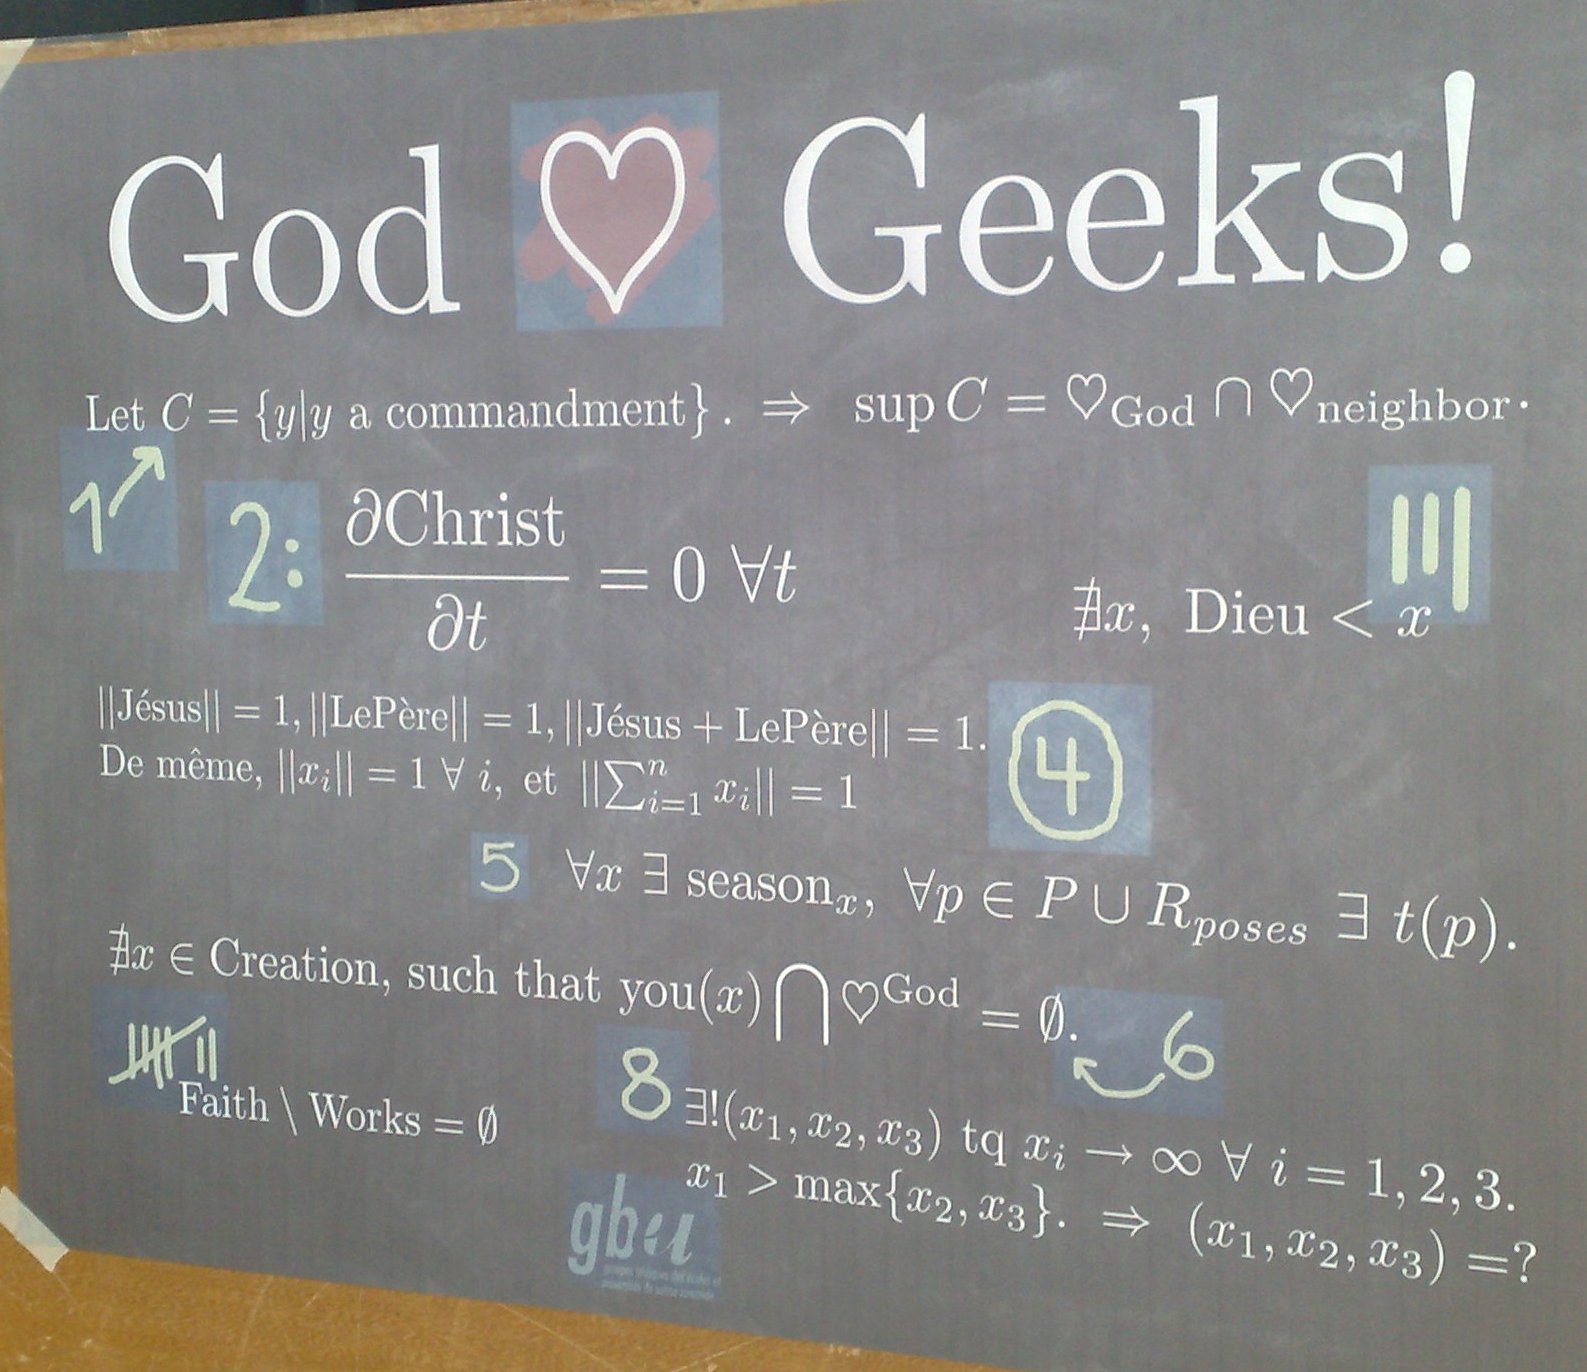 God ♡ Geeks!
Let C = {y|y a commandment}. ⇒ sup C = ♡God ∩ ♡neighbor.
1
2: ∂Christ/∂t = 0 ∀t
|||
∄x, Dieu < x
||Jésus|| = 1, ||LePère|| = 1, ||Jésus + LePère|| = 1.
4
De même, ||xᵢ|| = 1 ∀ i, et ||∑ⁿᵢ₌₁ xᵢ|| = 1
5 ∀x ∃ seasonₓ, ∀p ∈ P ∪ Rposes ∃ t(p).
∄x ∈ Creation, such that you(x) ⋂ ♡God = ∅.
6
Faith \ Works = ∅
8 ∃!(x₁, x₂, x₃) tq xᵢ → ∞ ∀ i = 1, 2, 3.
x₁ > max{x₂, x₃}. ⇒ (x₁, x₂, x₃) =?
gbu